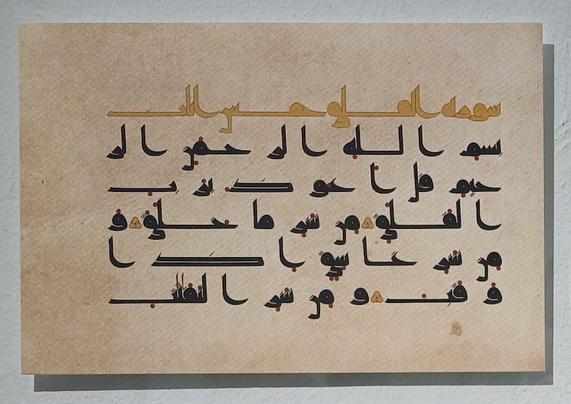 سورة الفلق خمس ايات
بسم الله الرحمن الر
حيم قل اعوذ برب
الفلق من شر ما خلق و
من شر غاسق اذا
وقب ومن شر النفثت